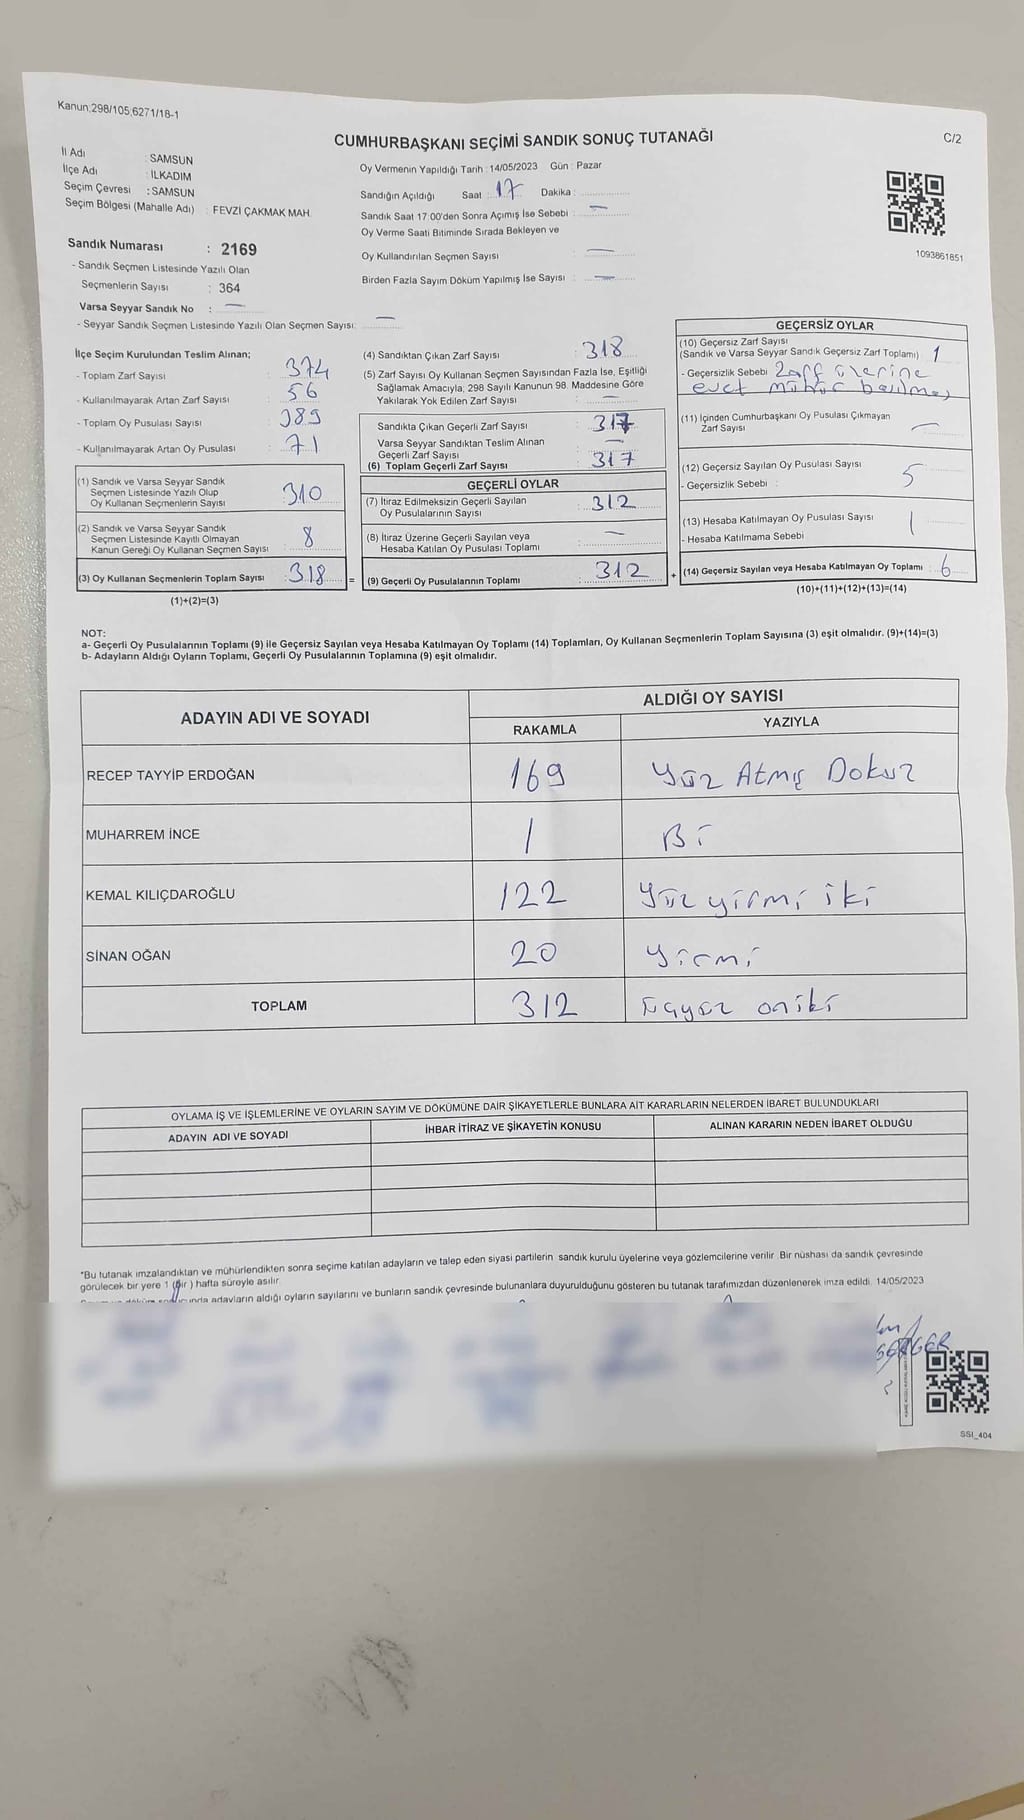 Kanun:298/105;6271/18-1
C/2
CUMHURBAŞKANI SEÇİMİ SANDIK SONUÇ TUTANAĞI
İl Adı : SAMSUN
İlçe Adı : İLKADIM
Seçim Çevresi : SAMSUN
Seçim Bölgesi (Mahalle Adı) : FEVZİ ÇAKMAK MAH.
Sandık Numarası : 2169
- Sandık Seçmen Listesinde Yazılı Olan
Seçmenlerin Sayısı : 364
Varsa Seyyar Sandık No : —
- Seyyar Sandık Seçmen Listesinde Yazılı Olan Seçmen Sayısı: —
Oy Vermenin Yapıldığı Tarih :14/05/2023 Gün : Pazar
Sandığın Açıldığı Saat : 17 Dakika :
Sandık Saat 17:00'den Sonra Açımış İse Sebebi : —
Oy Verme Saati Bitiminde Sırada Bekleyen ve
Oy Kullandırılan Seçmen Sayısı —
Birden Fazla Sayım Döküm Yapılmış İse Sayısı : —
1093861851
İlçe Seçim Kurulundan Teslim Alınan;
- Toplam Zarf Sayısı : 374
- Kullanılmayarak Artan Zarf Sayısı : 56
- Toplam Oy Pusulası Sayısı : 389
- Kullanılmayarak Artan Oy Pusulası : 71
(1) Sandık ve Varsa Seyyar Sandık
Seçmen Listesinde Yazılı Olup
Oy Kullanan Seçmenlerin Sayısı : 310
(2) Sandık ve Varsa Seyyar Sandık
Seçmen Listesinde Kayıtlı Olmayan
Kanun Gereği Oy Kullanan Seçmen Sayısı : 8
(3) Oy Kullanan Seçmenlerin Toplam Sayısı : 318 =
(1)+(2)=(3)
(4) Sandıktan Çıkan Zarf Sayısı : 318
(5) Zarf Sayısı Oy Kullanan Seçmen Sayısından Fazla İse, Eşitliği
Sağlamak Amacıyla; 298 Sayılı Kanunun 98. Maddesine Göre
Yakılarak Yok Edilen Zarf Sayısı : —
Sandıkta Çıkan Geçerli Zarf Sayısı : 317
Varsa Seyyar Sandıktan Teslim Alınan
Geçerli Zarf Sayısı : —
(6) Toplam Geçerli Zarf Sayısı : 317
GEÇERLİ OYLAR
(7) İtiraz Edilmeksizin Geçerli Sayılan
Oy Pusulalarının Sayısı : 312
(8) İtiraz Üzerine Geçerli Sayılan veya
Hesaba Katılan Oy Pusulası Toplamı : —
(9) Geçerli Oy Pusulalarının Toplamı : 312 +
GEÇERSİZ OYLAR
(10) Geçersiz Zarf Sayısı
(Sandık ve Varsa Seyyar Sandık Geçersiz Zarf Toplamı) : 1
- Geçersizlik Sebebi : Zarf üzerine
evet mühür basılmış
(11) İçinden Cumhurbaşkanı Oy Pusulası Çıkmayan
Zarf Sayısı : —
(12) Geçersiz Sayılan Oy Pusulası Sayısı : 5
- Geçersizlik Sebebi :
(13) Hesaba Katılmayan Oy Pusulası Sayısı : 1
- Hesaba Katılmama Sebebi :
(14) Geçersiz Sayılan veya Hesaba Katılmayan Oy Toplamı : 6
(10)+(11)+(12)+(13)=(14)
NOT:
a- Geçerli Oy Pusulalarının Toplamı (9) ile Geçersiz Sayılan veya Hesaba Katılmayan Oy Toplamı (14) Toplamları, Oy Kullanan Seçmenlerin Toplam Sayısına (3) eşit olmalıdır. (9)+(14)=(3)
b- Adayların Aldığı Oyların Toplamı, Geçerli Oy Pusulalarının Toplamına (9) eşit olmalıdır.
ADAYIN ADI VE SOYADI ALDIĞI OY SAYISI
RAKAMLA YAZIYLA
RECEP TAYYİP ERDOĞAN 169 Yüz Atmış Dokuz
MUHARREM İNCE 1 Bi
KEMAL KILIÇDAROĞLU 122 Yüz yirmi iki
SİNAN OĞAN 20 Yirmi
TOPLAM 312 Üçyüz oniki
OYLAMA İŞ VE İŞLEMLERİNE VE OYLARIN SAYIM VE DÖKÜMÜNE DAİR ŞİKAYETLERLE BUNLARA AİT KARARLARIN NELERDEN İBARET BULUNDUKLARI
ADAYIN ADI VE SOYADI İHBAR İTİRAZ VE ŞİKAYETİN KONUSU ALINAN KARARIN NEDEN İBARET OLDUĞU
*Bu tutanak imzalandıktan ve mühürlendikten sonra seçime katılan adayların ve talep eden siyasi partilerin sandık kurulu üyelerine veya gözlemcilerine verilir. Bir nüshası da sandık çevresinde
görülecek bir yere 1 (Bir) hafta süreyle asılır.
adayların aldığı oyların sayılarını ve bunların sandık çevresinde bulunanlara duyurulduğunu gösteren bu tutanak tarafımızdan düzenlenerek imza edildi. 14/05/2023
SSI_404